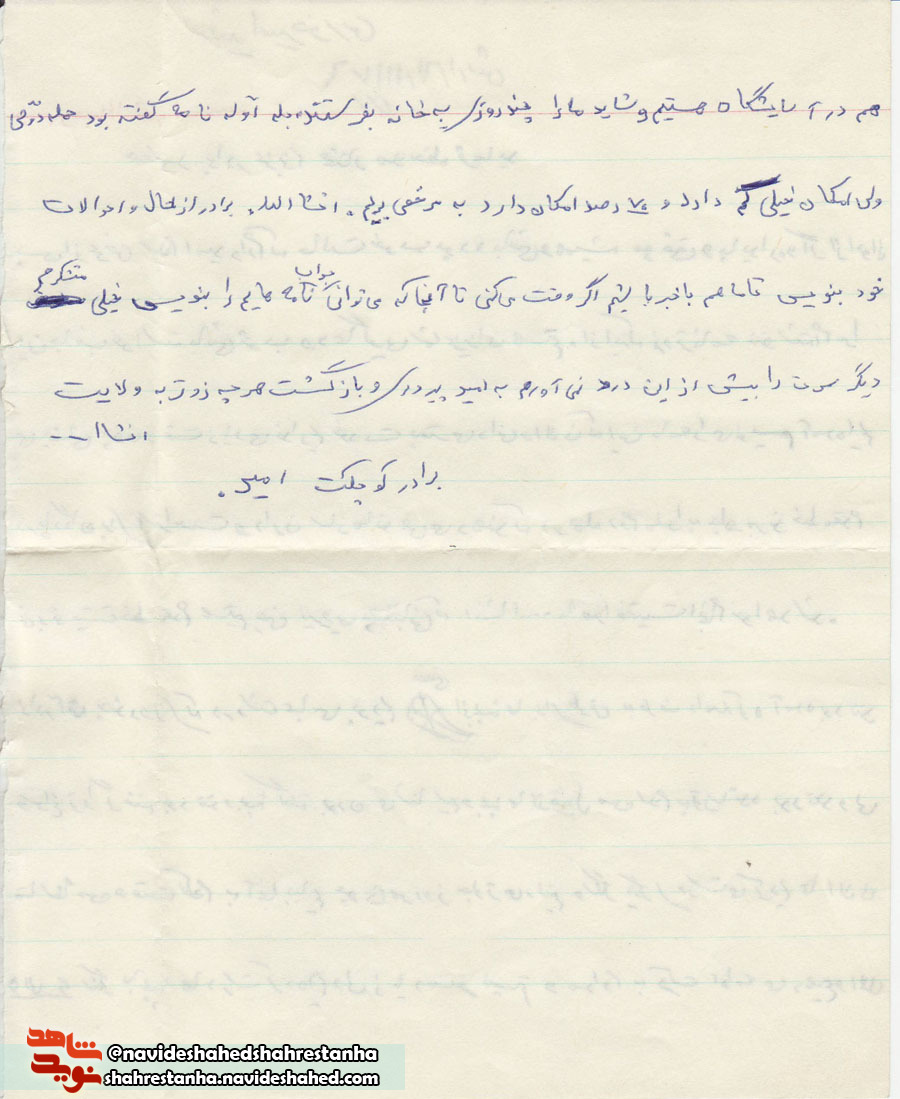 هم در آسایشگاه هستیم و شاید ما را چند روزی به خانه بفرستند بله آوله نامه گفته بود حمله
ولی امکان خیلی دارد و ۷۰ درصد امکان دارد به مرخصی بیایم. انشاالله. برادر از حال و احوالات
خود بنویس تا ما هم باخبر باشیم اگر وقت می‌کنی تا آنجا که می‌توانی جواب نامه هایم را بنویس خیلی متشکرم
دیگر سرت را بیش از این درد نمی آورم به امید پیروزی و بازگشت هرچه زودتر به ولایت
انشاا...
برادر کوچکت امیر.
شاهد
نوید
@navideshahedshahrestanha
shahrestanha.navideshahed.com